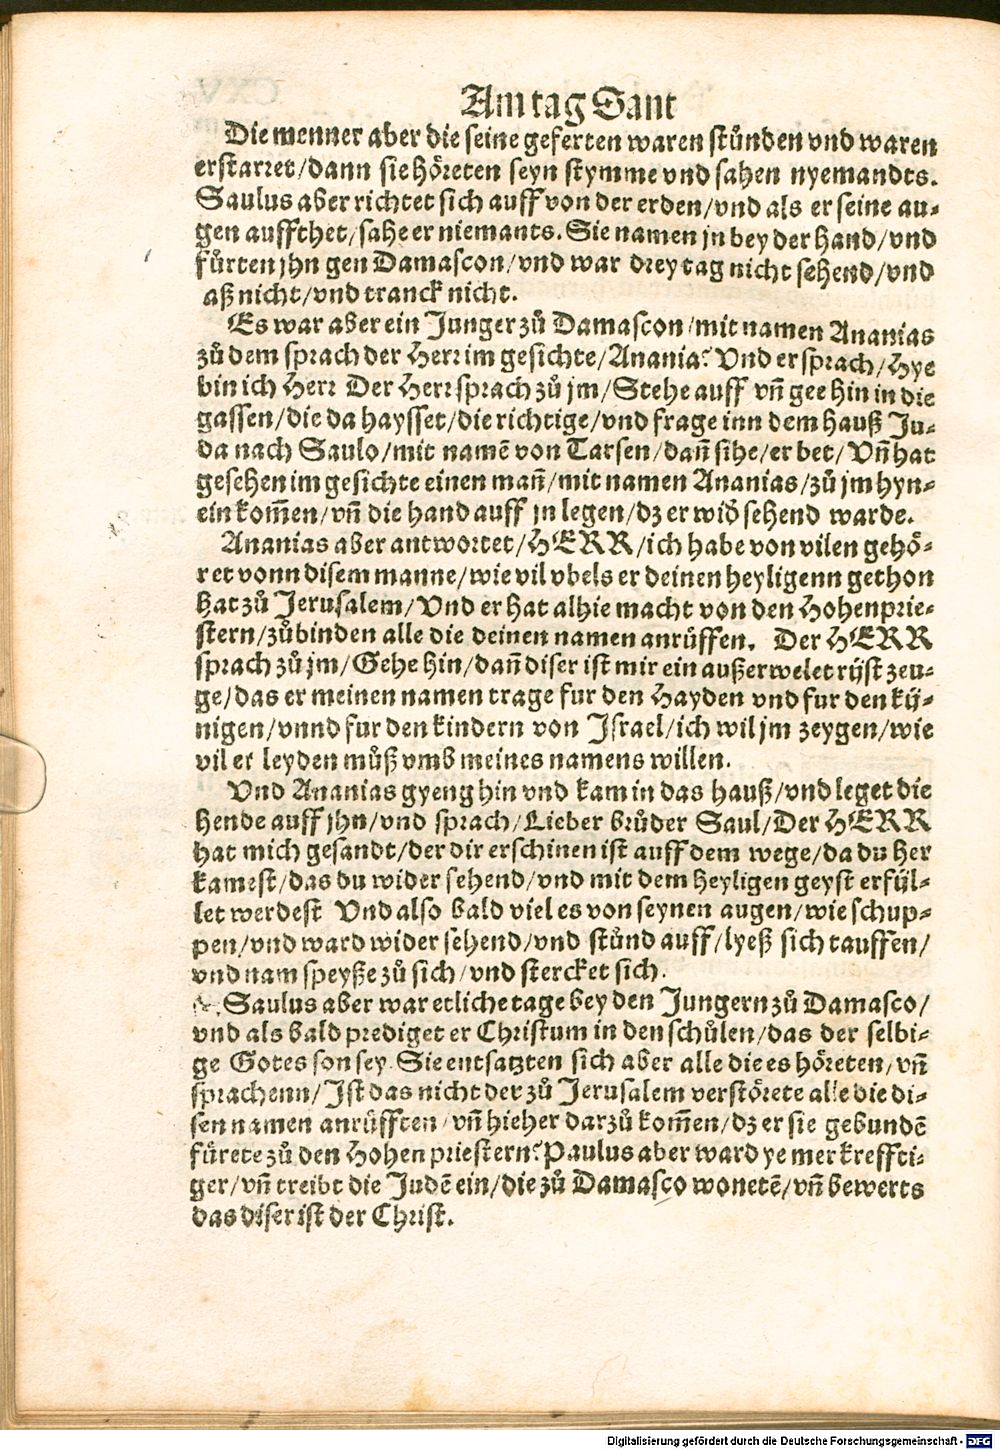 Am tag Sant
Die menner aber die seine geferten waren stůnden vnd waren
erstarret/dann sie höreten seyn stymme vnd sahen nyemandts.
Saulus aber richtet sich auff von der erden/vnd als er seine au-
gen auffthet/sahe er niemants. Sie namen jn bey der Hand/vnd
fůrten jhn gen Damascon/vnd war drey tag nicht sehend/vnd
aß nicht/vnd tranck nicht.
Es war aber ein Junger zů Damascon/mit namen Ananias
zů dem sprach der Herr im gesichte/Anania? Vnd er sprach/Hye
bin ich Herr Der Herr sprach zů jm/Stehe auff vñ gee hin in die
gassen/die da haysset/die richtige/vnd frage inn dem hauß Ju-
da nach Saulo/mit namē von Tarsen/dañ sihe/er bet/Vñ hat
gesehen im gesichte einen mañ/mit namen Ananias/zů jm hyn-
ein kom̄en/vñ die hand auff jn legen/dz er wid̕ sehend warde.
Ananias aber antwortet/HERR/ich habe von vilen gehö-
ret vonn disem manne/wie vil vbels er deinen heyligenn gethon
hat zů Jerusalem/Vnd er hat alhie macht von den Hohenprie-
stern/zůbinden alle die deinen namen anrůffen. Der HERR
sprach zů jm/Gehe hin/dañ diser ist mir ein außerwelet rÿst zeu-
ge/das er meinen namen trage fur den Hayden vnd fur den kÿ-
nigen/vnnd fur den kindern von Israel/ich wil jm zeygen/wie
vil er leyden můß vmb meines namens willen.
Vnd Ananias gyeng hin vnd kam in das hauß/vnd leget die
hende auff jhn/vnd sprach/Lieber brůder Saul/Der HERR
hat mich gesandt/der dir erschinen ist auff dem wege/da du her
kamest/das du wider sehend/vnd mit dem heyligen geyst erfÿl-
let werdest Vnd also bald viel es von seynen augen/wie schup-
pen/vnd ward wider sehend/vnd stůnd auff/lyeß sich tauffen/
vnd nam speyße zů sich/vnd stercket sich.
Saulus aber war etliche tage bey den Jungern zů Damasco/
vnd als bald prediget er Christum in den schůlen/das der selbi-
ge Gotes son sey. Sie entsatzten sich aber alle die es höreten/vñ
sprachenn/Ist das nicht der zů Jerusalem verstörete alle die di-
sen namen anrůfften/vñ hieher darzů kom̄en/dz er sie gebundē
fůrete zů den Hohen priestern? Paulus aber ward ye mer kreffti-
ger/vñ treibt die Judē ein/die zů Damasco wonetē/vñ bewerts
das diser ist der Christ.
Digitalisierung gefördert durch die Deutsche Forschungsgemeinschaft - DFG